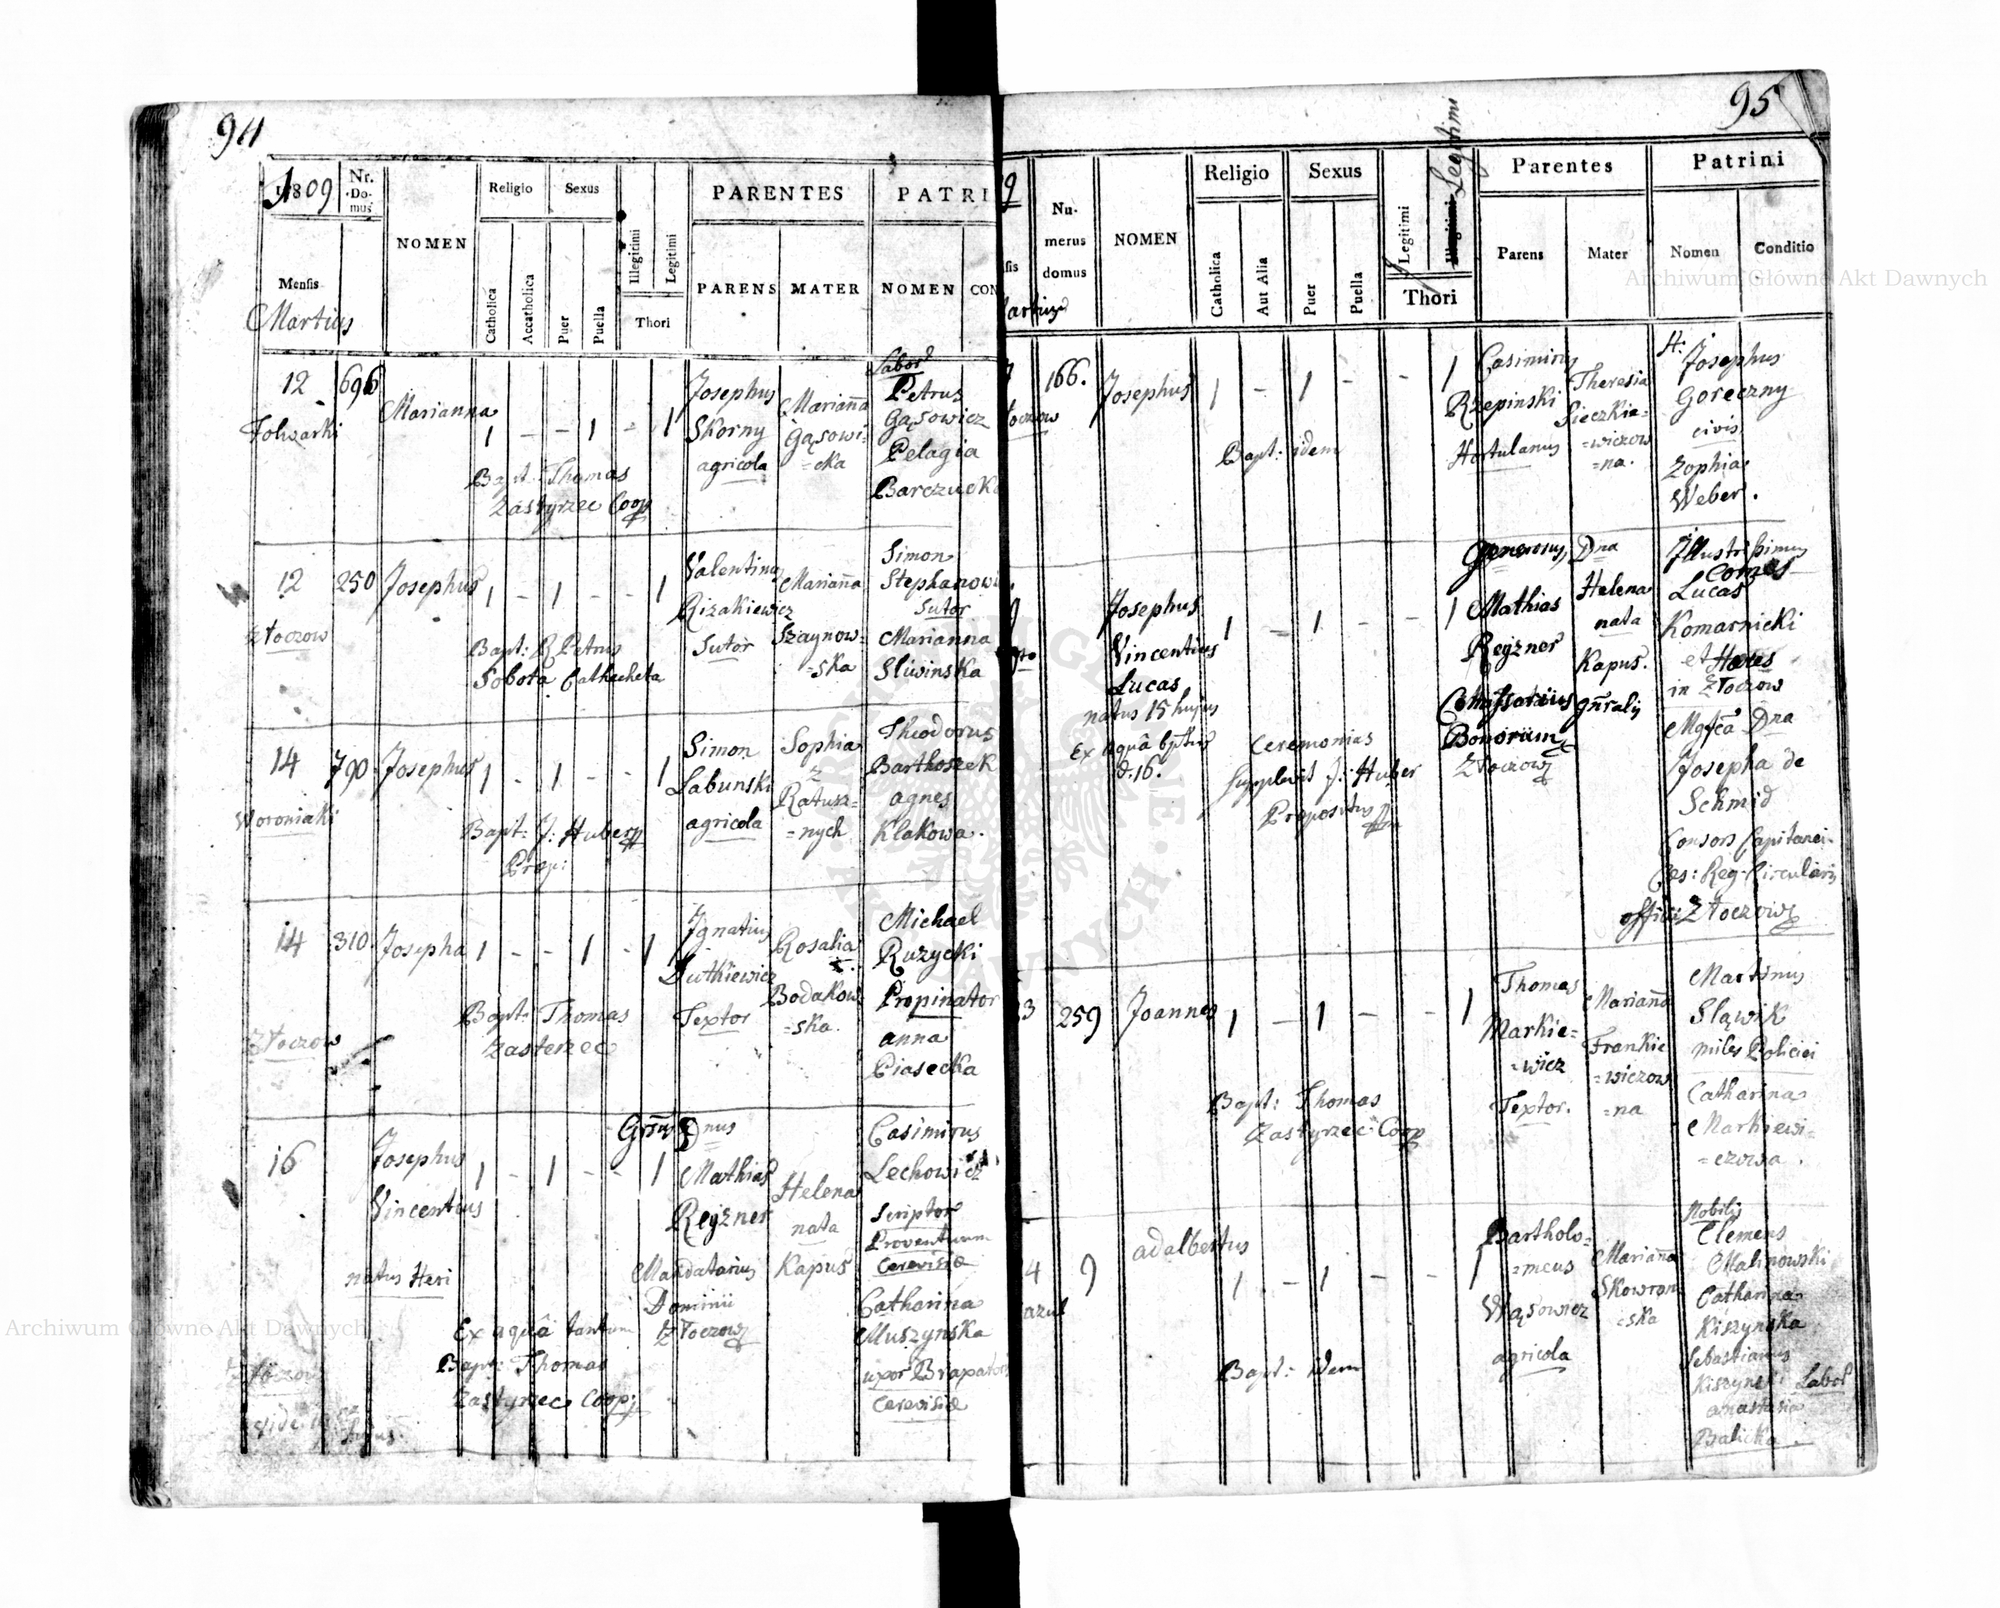 94
1809
Nr. Domus
NOMEN
Religio
Sexus
PARENTES
PATRI
Mensis
Martius
Catholica
Accatholica
Puer
Puella
Illegitimi
Legitimi
Thori
PARENS
MATER
NOMEN
CON
12
696
Folwarki
Marianna
1 - - 1 - 1
Josephus
Skorny
agricola
Marianna
Gąsowi=
=cka
Labor
Petrus
Gąsowicz
Pelagia
Barczucka
Bapt: Thomas
Zastyrzec Coop
12
250
Złoczow
Josephus
1 - 1 - - 1
Valentinus
Rizakiewicz
Sutor
Marianna
Szaynow=
=ska
Simon
Stephanowi
Sutor
Marianna
Sliwinska
Bapt: R Petrus
Sobota Cathecheta
14
790
Woroniaki
Josephus
1 - 1 - - 1
Simon
Labunski
agricola
Sophia
z
Ratusz=
=nych
Theodorus
Barthoszek
agnes
Klakowa.
Bapt: J: Huber
Prep:
14
310
Złoczow
Josepha
1 - - 1 - 1
Ignatius
Dutkiewicz
Textor
Rosalia
Bodakow=
=ska.
Michael
Ruzycki
Propinator
anna
Piasecka
Bapt: Thomas
Zasterzec
16
Josephus
Vincentius
natus Heri
1 - 1 - - 1
Dnus
Mathias
Reyzner
Mandatarius
Dominii
Złoczow
Helena
nata
Kapus
Casimirus
Lechowicz
Scriptor
Proventuum
Cerevisiæ
Catharina
Muszynska
uxor Braxatoris
Cerevisiæ
Ex aquâ tantum
Bapt: Thomas
Zastyrzec Coop:
Złoczow
95
9
Martius
Numerus domus
NOMEN
Religio
Sexus
Legitimi
Parentes
Patrini
Catholica
Aut Alia
Puer
Puella
Legitimi
Illegitimi
Thori
Parens
Mater
Nomen
Conditio
166.
Josephus
1 - 1 - - 1
Casimirus
Rzepinski
Hortulanus
Theresia
Sieczkie=
=wiczow
=na.
Josephus
Goreczny
civis
Zophia
Weber.
Bapt: idem
Josephus
Vincentius
Lucas
natus 15 hujus
Ex aquâ bptus
d. 16.
1 - 1 - - 1
Generosus
Mathias
Reyzner
Comissarius
Bonorum
Złoczow
Dna
Helena
nata
Kapus.
gnralis
Illustrissimus
Comes
Lucas
Komarnicki
et Hæres
in Złoczow
Mgfca Dna
Josepha de
Schmid
Consors Capitanei
Cæs: Reg: Circularis
officii Złoczow
Ceremonias
supplevit J: Huber
Prepositus
23
259
Joannes
1 - 1 - - 1
Thomas
Markie=
=wicz
Textor.
Marianna
Frankie
=wiczow
=na
Martinus
Sląwik
miles Policiei
Catharina
Markiewi=
=czowa.
Bapt: Thomas
Zastyrzec Coop
24
9
adalbertus
1 - 1 - - 1
Bartholo=
=meus
Wąsowicz
agricola
Marianna
Skowron
=ska
Nobilis
Clemens
Malinowski
Catharina
Kiszynska
Sebastianus
Kiszynski Labor
anastasia
Balicka.
Bapt: idem
Archiwum Główne Akt Dawnych
Archiwum Główne Akt Dawnych